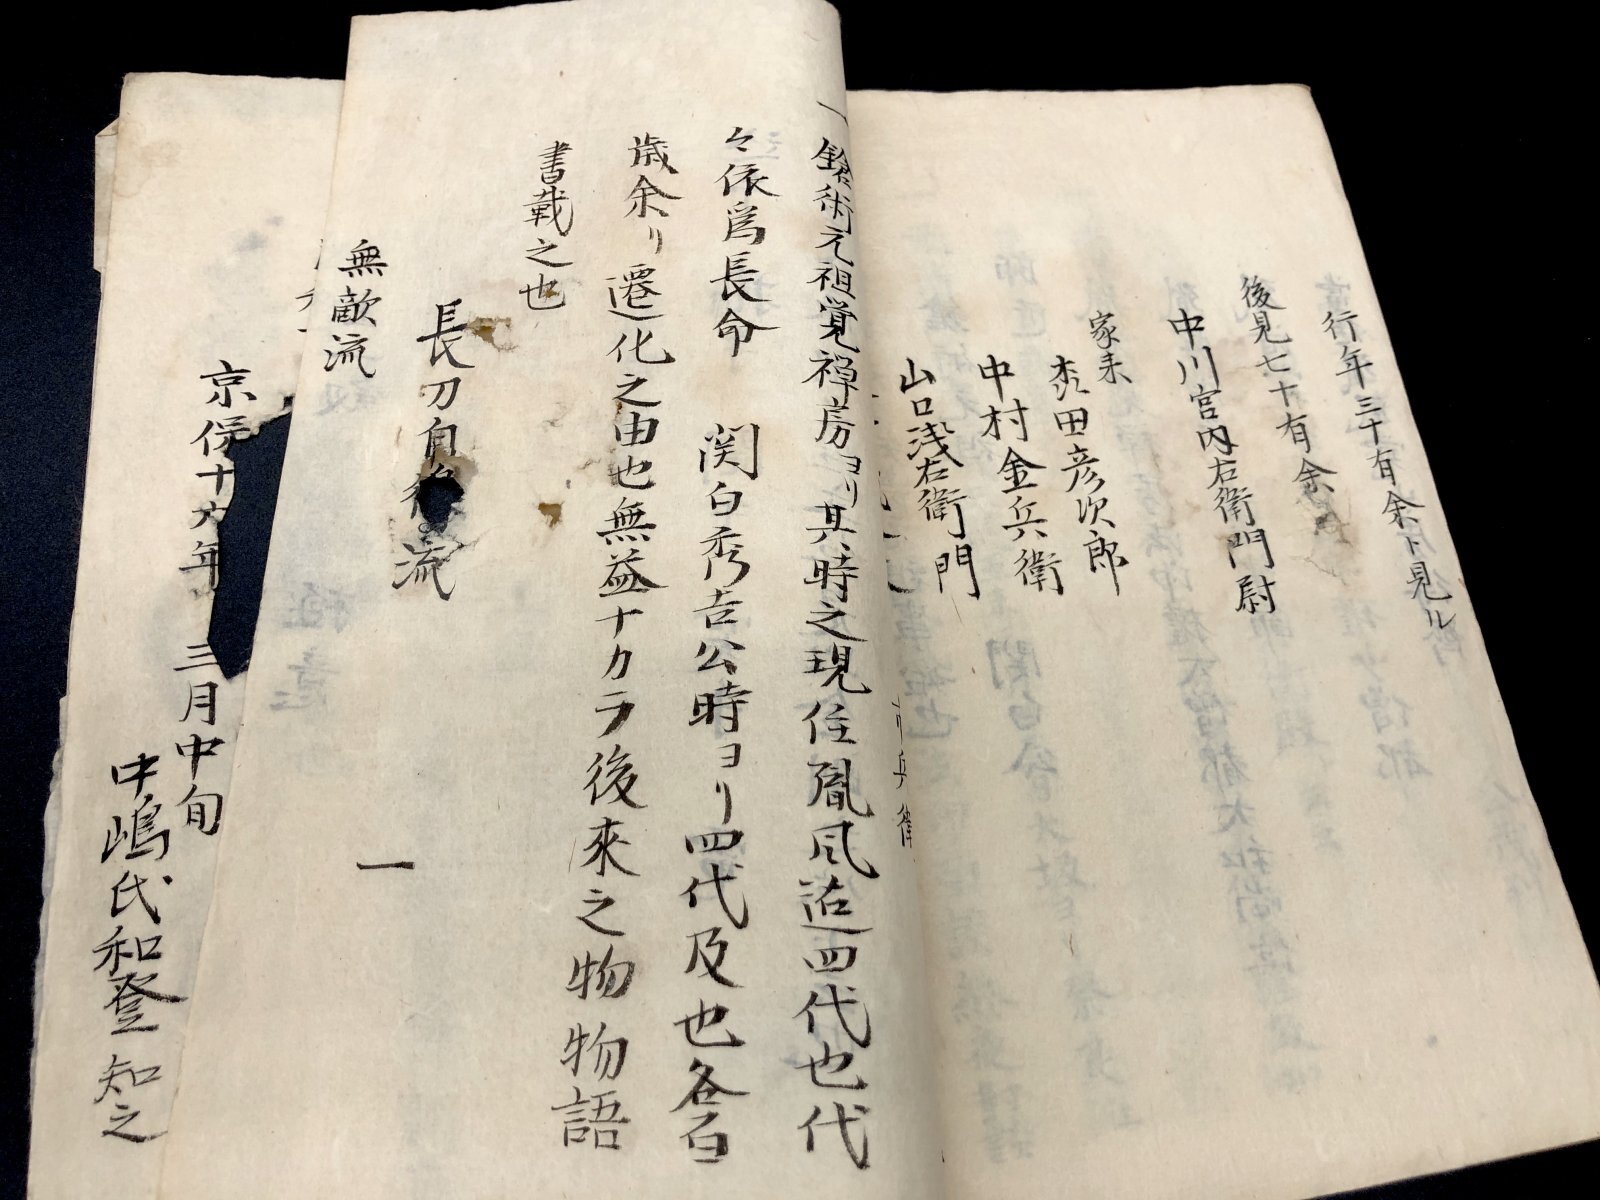 行年三十有余ト見ル
後見七十有余
中川宮内右衛門尉
家来
森田彦次郎
中村金兵衛
山口浅右衛門
兵衛
一鎗術元祖覚禅房ヨリ其時之現住胤風迠四代也代
々依爲長命 関白秀吉公時ヨリ四代及也各百
歳余リ遷化之由也無益ナカラ後來之物物語
書載之也
長刀自
流
無敵流
一
京保十六年 三月中旬
中嶋氏和登知之